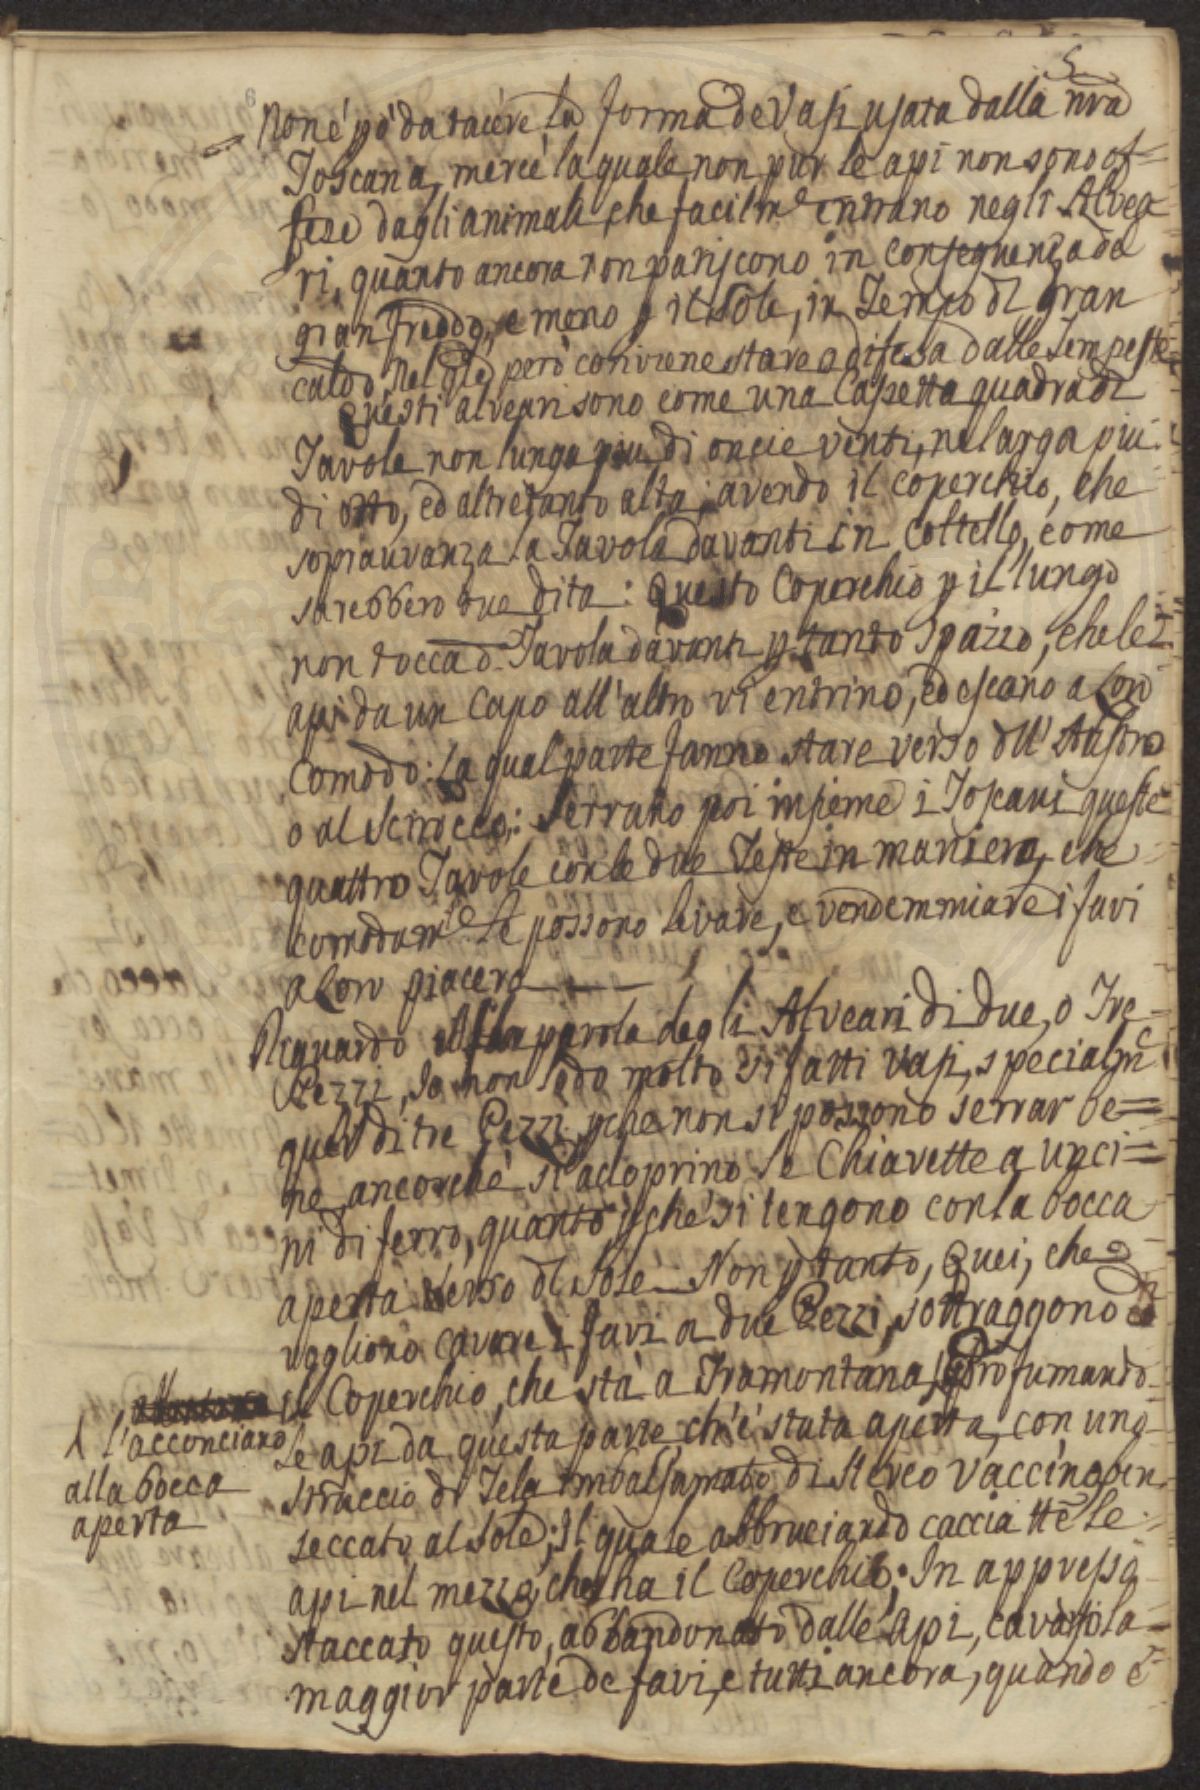 5
6
Non è pò da tacere la forma de Vasi usata dalla nrã
Toscana, mercè la quale non pur le api non sono of=
fese dagli animali, che facilmte entrano negli Alvea
ri, quanto ancora non patiscono in conseguenza da
gran freddo, e meno p il Sole, in Tempo di gran
caldo nel qle però conviene stare a difesa dalle Tempeste
Questi alveari sono come una Cassetta quadra di
Tavole non lunga più di oncie venti, ne larga più
di otto, ed altretanto alta, avendo il coperchio, che
sopravvanza la Tavola davanti in Coltello, come
sarebbero due dita: Questo Coperchio p il lungo
non tocca d. Tavola davanti p tanto Spazio, che le
api da un Capo all'altro vi entrino, ed escano a Loro
Comodo: La qual parte fanno stare verso dll' Austro
o al Scirocco: Serrano poi insieme i Toscani queste
quattro Tavole con le due Teste in maniera, che
comodamte le possono levare, e vendemmiare i favi
a Loro piacere
Riguardo alla parola degli Alveari di due, o Tre
Pezzi, Io non lodo molto sifatti Vasi, specialme
quelli di tre Pezzi, pche non si possono serrar be=
ne ancorchè si adoprino le Chiavette a unci=
ni di ferro, quanto pchè si tengono con la bocca
aperta verso dl Sole. Non p tanto, Quei, che
vogliono cavare i favi a due Pezzi, sottraggono
il Coperchio, che sta a Tramontana, profumando
le api da questa parte, ch'è stata aperta, con uno
straccio di Tela imbalsamato di sterco vaccino in
seccato al Sole; Il quale abbruciando caccia tte le
api nel mezzo, che ha il Coperchio; In appresso
staccato questo, abbandonato dalle Api, cavasi la
maggior parte de favi, e tutti ancora, quando è
l'acconciano
alla bocca
aperta